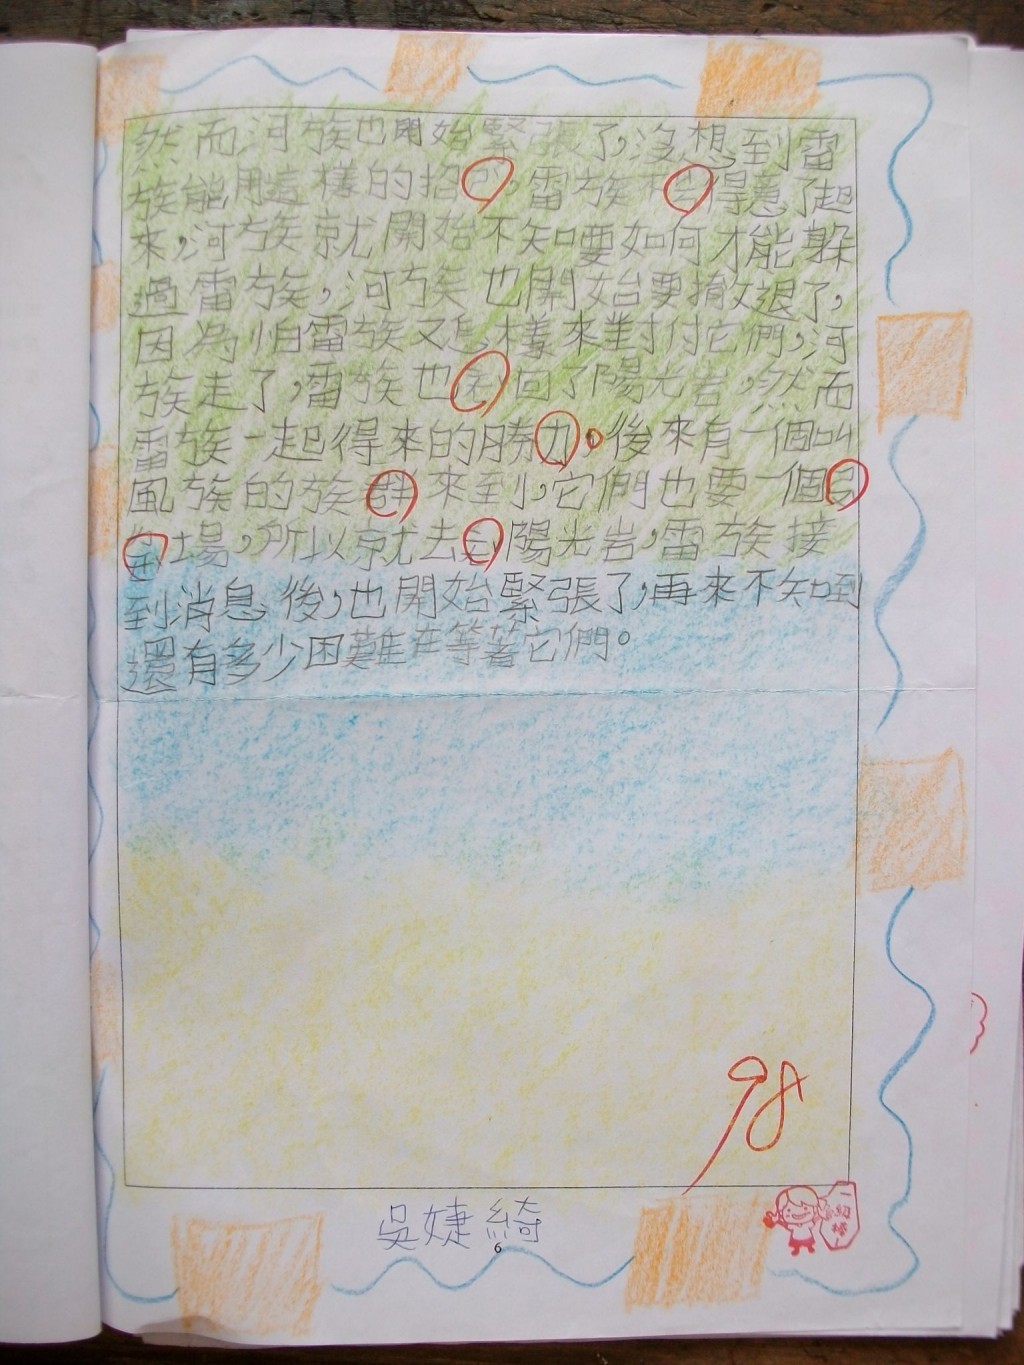 然而河族也開始緊張了,沒想到雷
族能用這樣的招,雷族得意了起
來,河族就開始不知要如何才能躲
過雷族,河族也開始要撤退了,
因為怕雷族又怎樣來對打它們,河
族走了,雷族也回了陽光岩,然而
雷族一起得來的勝力。後來有一個叫
風族的族群來到,它們也要一個
場,所以就去陽光岩,雷族接
到消息後,也開始緊張了,再來不知到
還有多少困難在等著它們。
98
吳婕綺
6